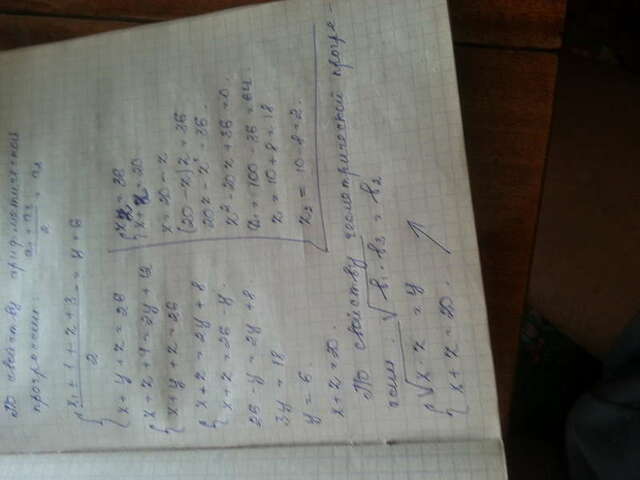 По свойству арифметической
прогрессии: a₁ + a₃ / 2 = a₂
x + 1 + z + 3 / 2 = y + 6
x + y + z = 26
x + z + 4 = 2y + 12
x + y + z = 26
x + z = 2y + 8
x + z = 26 - y
26 - y = 2y + 8
3y = 18
y = 6
x + z = 20.
По свойству геометрической прогре-
ссии. √b₁·b₃ = b₂
√x·z = y
x + z = 20.
xz = 36
x + z = 20.
x = 20 - z
(20 - z)z = 36
20z - z² = 36.
z² - 20z + 36 = 0.
= 100 - 36 = 64.
z = 10 + 8 = 18
z₂ = 10 - 8 = 2.